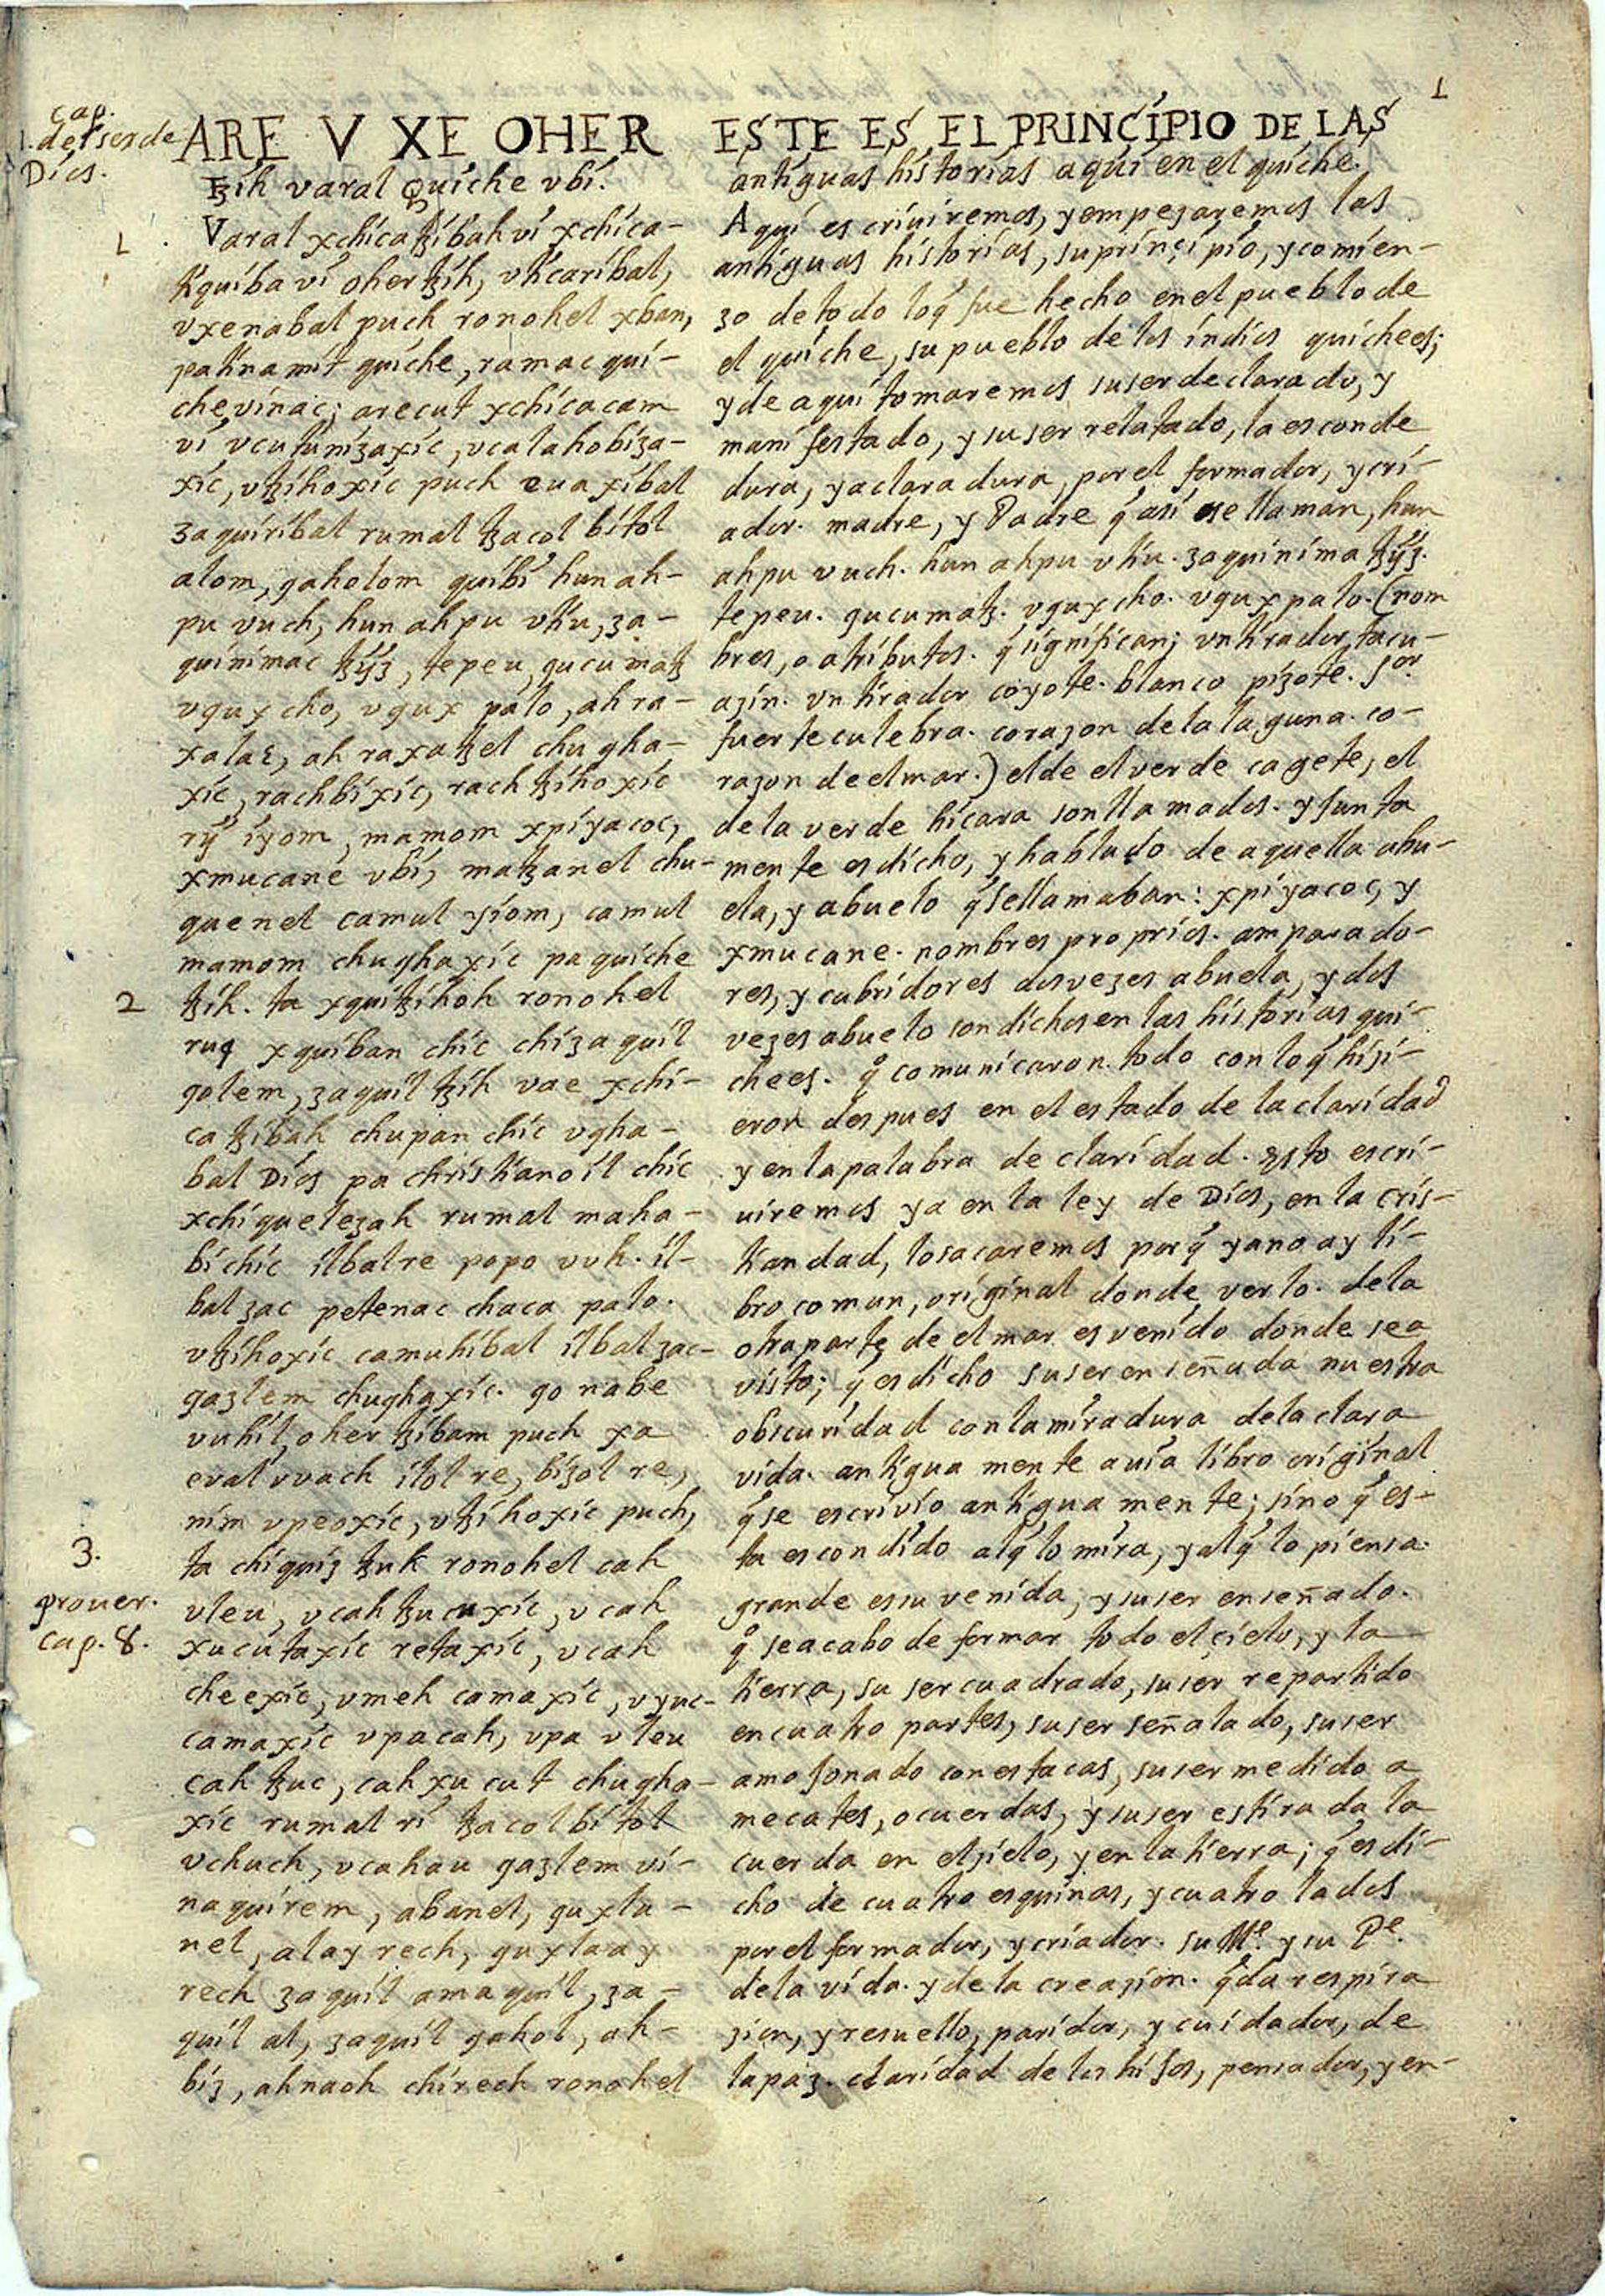 1
cap.
1. del ser de
Dios.
ARE V XE OHER
ꜩih varal Quiche vbi.
1
Varal xchicaꜩibah vi xchica-
tiquiba vi oher ꜩih, vticaribal,
vxenabal puch ronohel xban,
pa tinamit quiche, ramac qui-
che vinac; arecut xchicacam
vi vcutunizaxic, vcalahobiza-
xic, vꜩihoxic puch euaxibal
zaquiribal rumal ꜩacol bitol
alom, qaholom quibi hun ah-
pu vuch, hun ahpu vtiu, za-
quinimac ꜩyz, tepeu, qucumaꜩ
vqux cho, vqux palo, ah ra-
xalaꜫ, ah raxaꜩel chugha-
xic, rachbixic, rach ꜩihoxic
ry iyom, mamom xpiyacoc,
xmucane vbi, maꜩanel chu-
quenel camul yiom, camul
mamom chughaxic pa quiche
2
ꜩih. ta xquiꜩihoh ronohel
ruq xquiban chic chi zaquil
qolem, zaquil ꜩih vae xchi-
caꜩibah chupan chic vgha-
bal Dios pa christianoil chic
xchiquelezah rumal maha-
bi chic ilbal re popo vuh. il-
bal zac petenac chaca palo.
vꜩihoxic camuhibal ilbal zac-
qazlem chughaxic. qo nabe
vuhil, oher ꜩibam puch xa
eval vvach ilol re, bizol re,
nim vpeoxic, vꜩihoxic puch,
3.
prouer.
cap. 8.
ta chi quiz ꜩuk ronohel cah
vleu, vcah ꜩucuxic, vcah
xucutaxic retaxic, vcah
cheexic, vmeh camaxic, vyuc-
camaxic vpa cah, vpa vleu
cah ꜩuc, cah xucut chugha-
xic rumal ri ꜩacol bitol
vchuch, vcahau qazlem vi-
naquirem, abanel, quxla-
nel, alay rech, quxlaay
rech zaquil amaquil, za-
quil al, zaquil qahol, ah-
biz, ahnaoh chirech ronohel
ESTE ES EL PRINCIPIO DE LAS
antiguas historias aqui en el quiche.
Aqui escriuiremos, y empezaremos las
antiguas historias, su prinçipio, y comien-
zo de todo lo q̃ fue hecho en el pueblo de
el quiche, su pueblo de los indios quichees;
y de aqui tomaremos su ser declarado, y
manifestado, y su ser relatado, la esconde
dura, y aclaradura, por el formador, y cri-
ador. madre, y Padre q̃ asi se llaman, hun
ahpu vuch. hun ahpu vtiu. zaquinima ꜩyz.
tepeu. qucumaꜩ. vqux cho. vqux palo. (nom
bres, o atributos. q̃ significan; vn tirador tacu-
azin. vn tirador coyote. blanco pizote. Sor.
fuerte culebra. corazon de la laguna. co-
razon de el mar.) el de el verde cagete, el
de la verde hicara son llamados. y junta
mente es dicho, y hablado de aquella abu-
ela, y abuelo q̃ se llamaban: xpiyacoc, y
xmucane. nombres proprios. amparado-
res, y cubridores dos vezes abuela, y dos
vezes abuelo son dichos en las historias qui-
chees. q̃ comunicaron. todo con lo q̃ hizi-
eron despues en el estado de la claridad
y en la palabra de claridad. Esto escri-
uiremos ya en la ley de Dios, en la cris-
tiandad, lo sacaremos porq̃ ya no ay li-
bro comun, original donde verlo. de la
otra parte de el mar es venido donde sea
visto; q̃ es dicho su ser enseñada nuestra
obscuridad con la miradura de la clara
vida. antiguamente auia libro original
q̃ se escrivio antiguamente; sino q̃ es-
ta escondido al q̃ lo mira, y al q̃ lo piensa.
grande es su venida, y su ser enseñado.
q̃ se acabo de formar todo el çielo, y la
tierra, su ser cuadrado, su ser repartido
en cuatro partes, su ser señalado, su ser
amojonado con estacas, su ser medido a
mecates, o cuerdas, y su ser estirada la
cuerda en el zielo, y en la tierra; q̃ es di-
cho de cuatro esquinas, y cuatro lados
por el formador, y criador. su Me. y su Pe.
de la vida. y de la creazion. q̃ da respira
zion, y resuello, paridor, y cuidador, de
la paz. claridad de los hijos, pensador, y en-